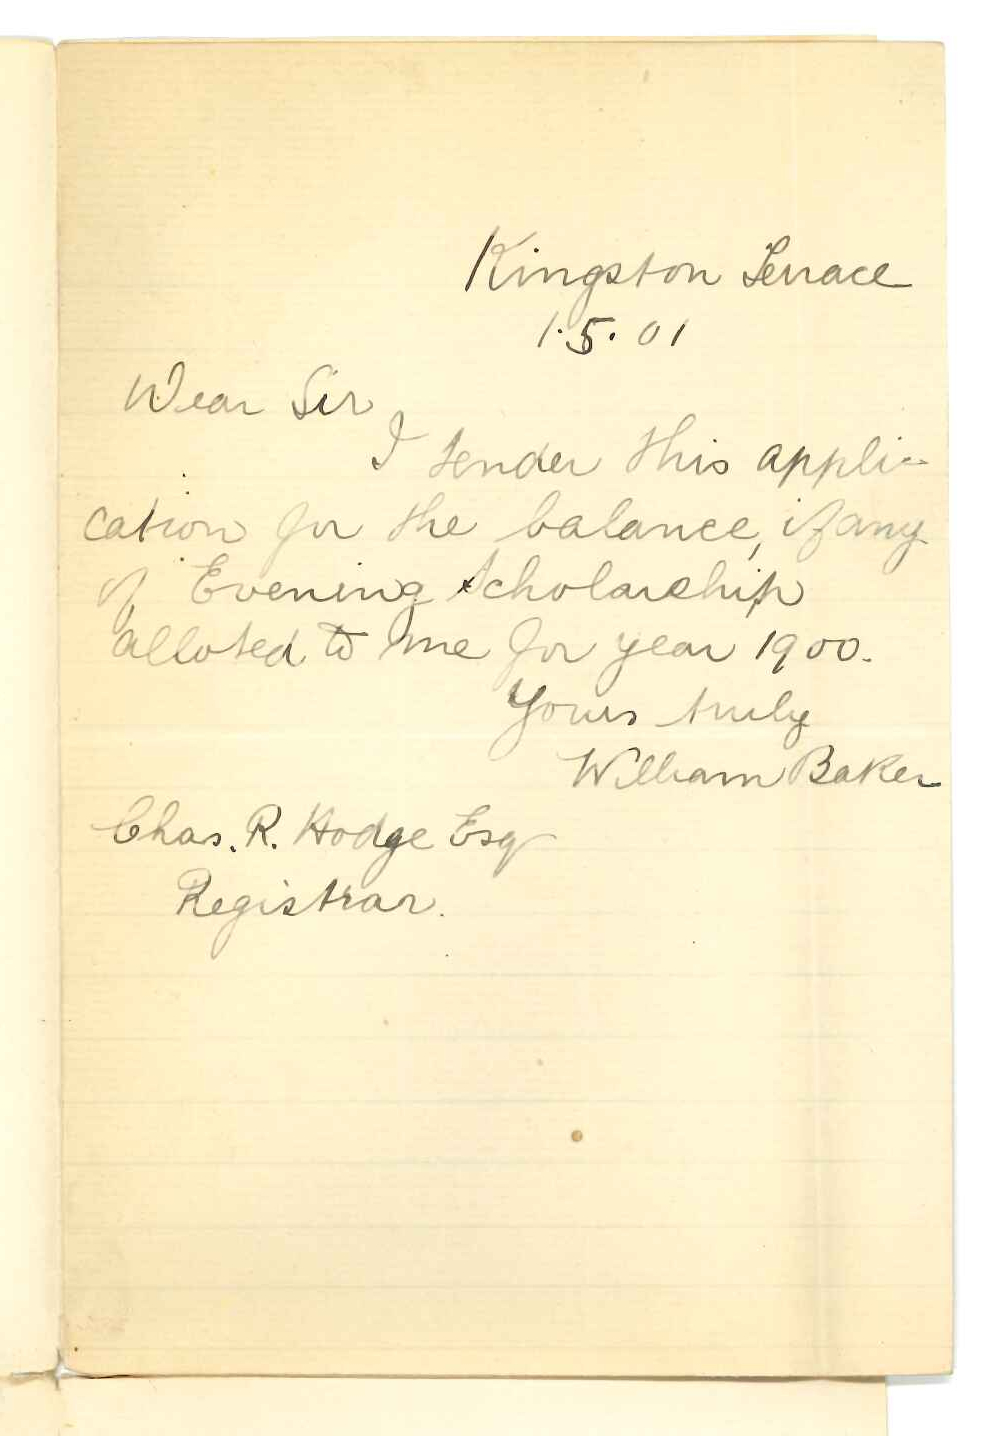 Kingston Terrace
1.5.01
Dear Sir
I tender this appli-
cation for the balance, if any
of Evening Scholarship
alloted to me for year 1900.
Yours truly
William Baker
Chas. R. Hodge Esq
Registrar.